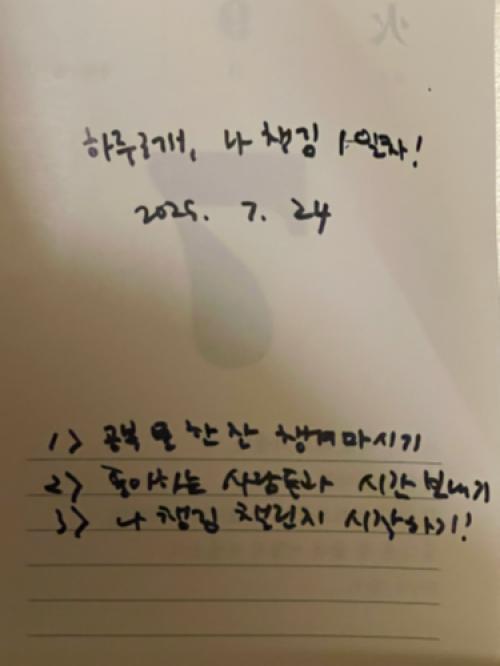 하루3개, 나 챙김 1일차!
2025. 7. 24
1> 공복 물 한 잔 챙겨마시기
2> 좋아하는 사람들과 시간 보내기
3> 나 챙김 챌린지 시작하기!